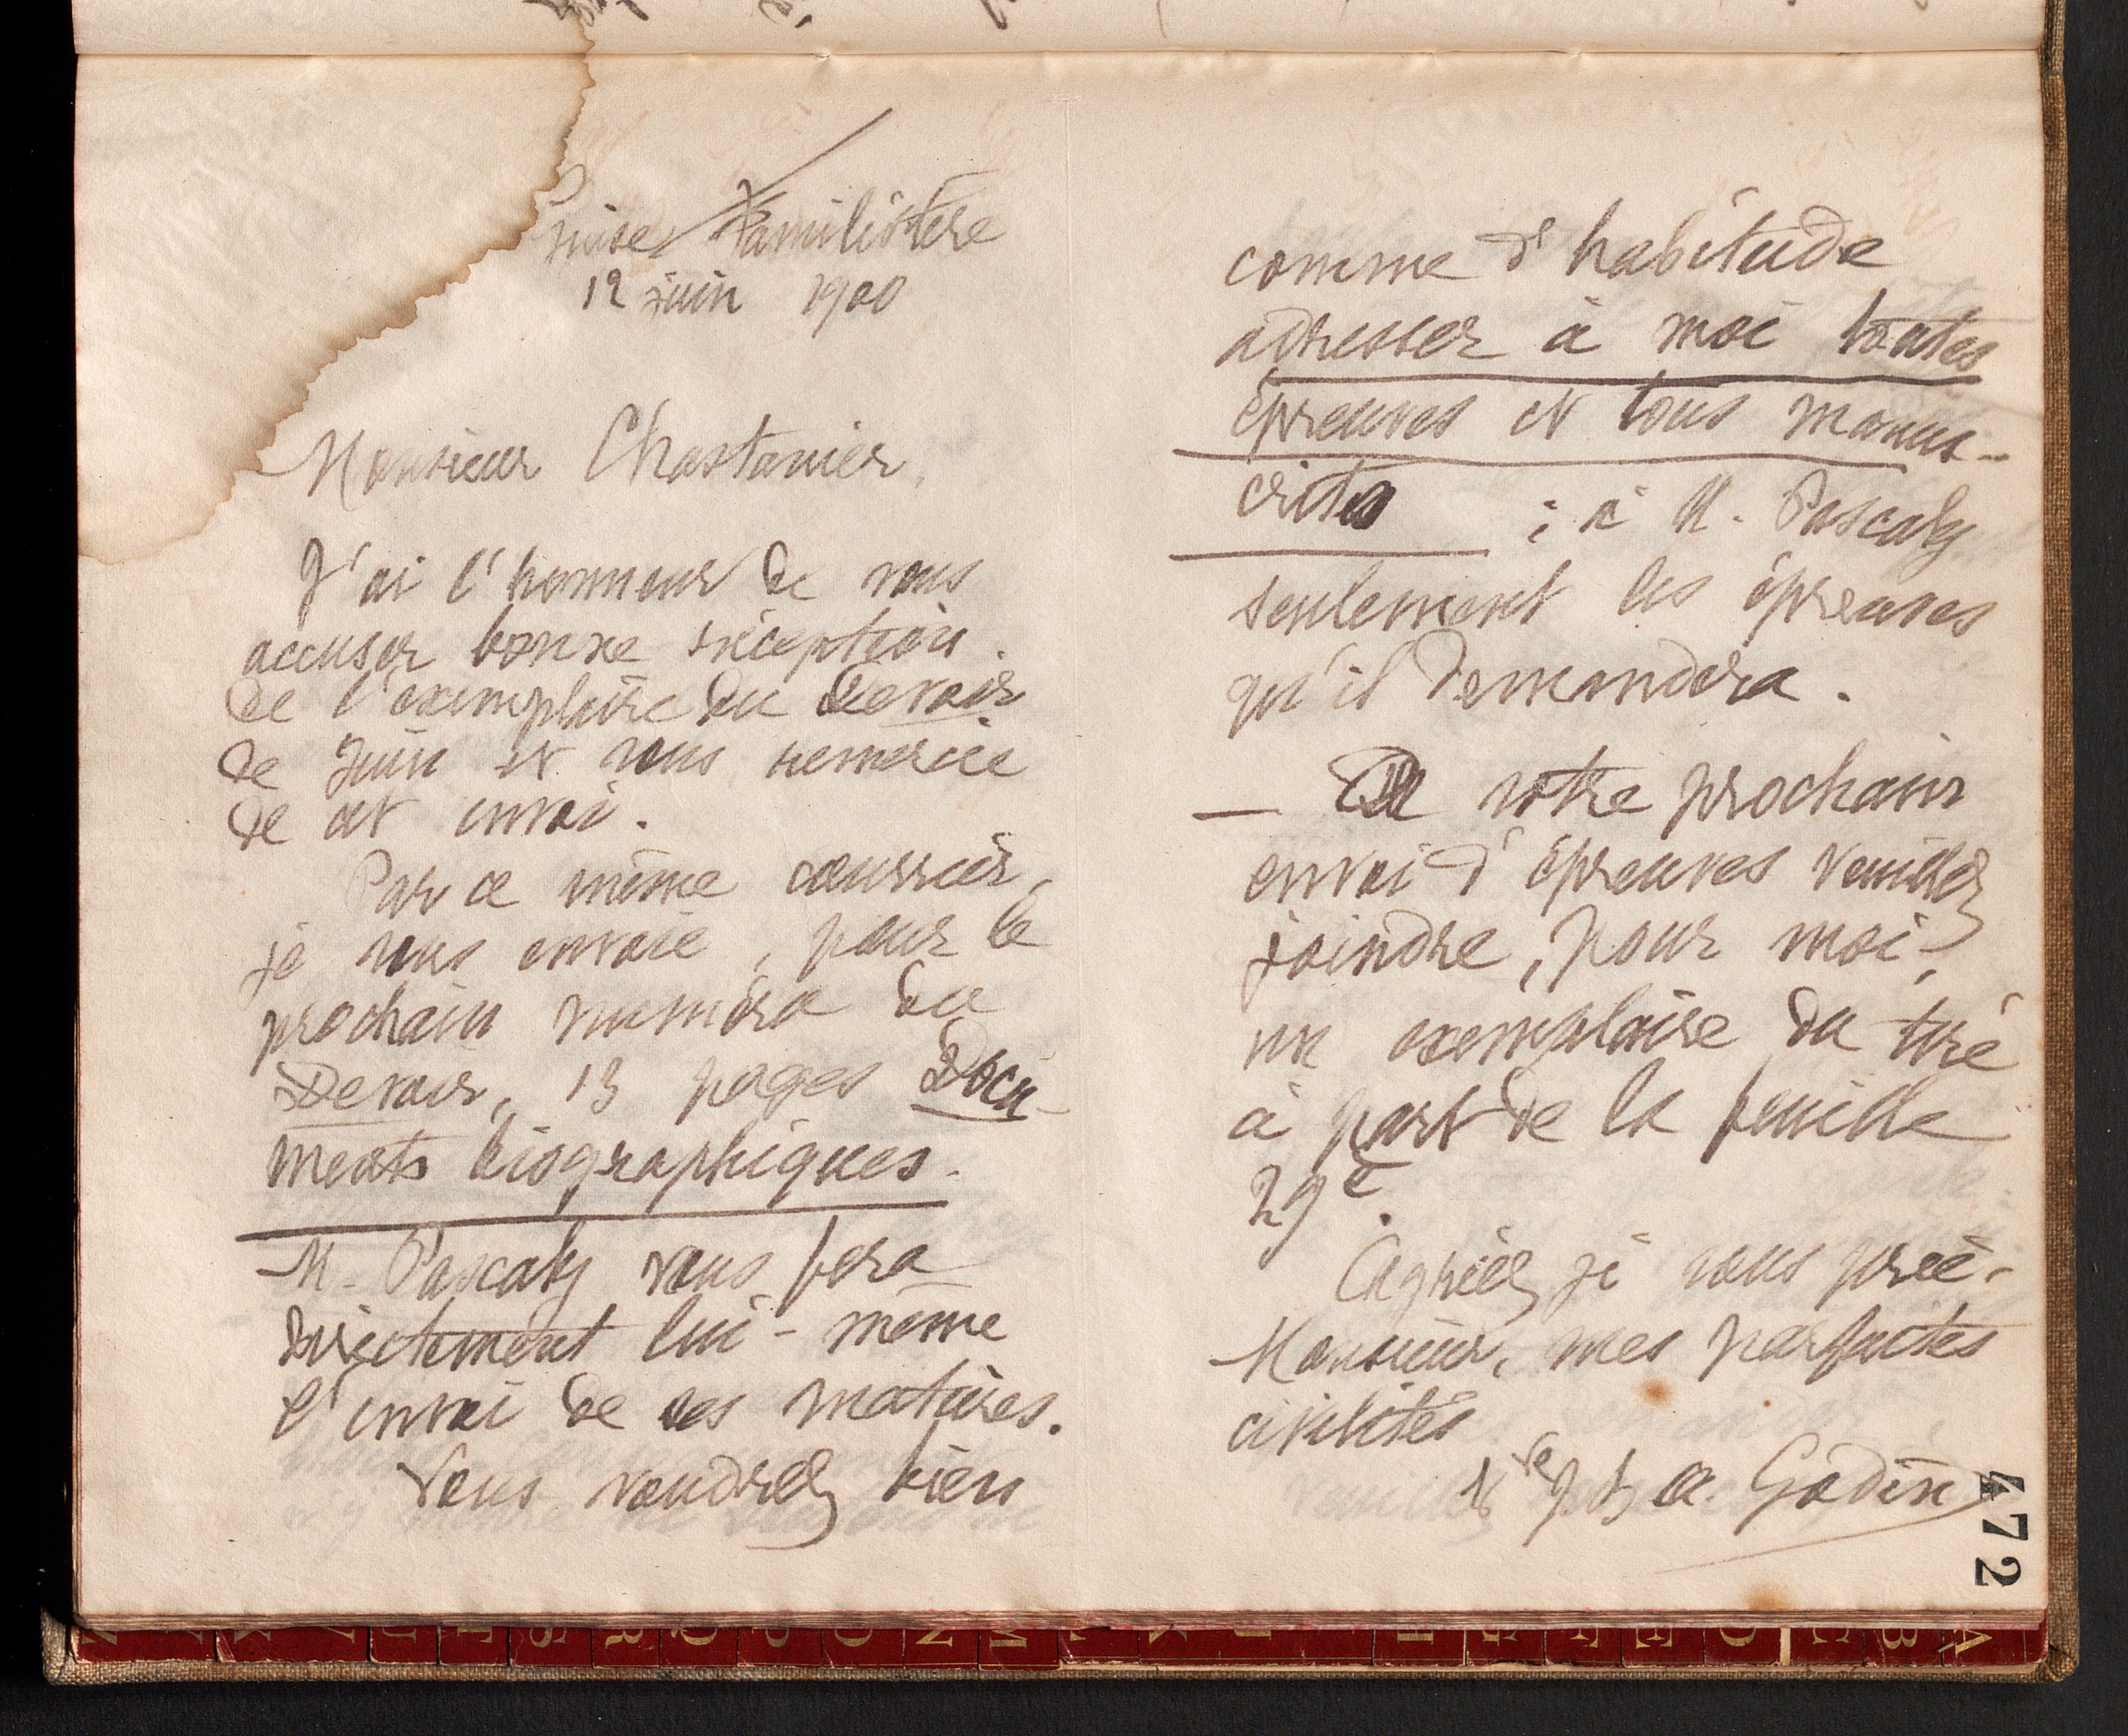 Guise Familistère
12 juin 1900
Monsieur Chastanier,
J'ai l'honneur de vous
accuser bonne réception
de l'exemplaire du Devoir
de Juin et vous remercie
de cet envoi.
Par ce même courrier,
je vous envoie, pour le
prochain numéro du
Devoir, 13 pages Docu-
ments biographiques.
M. Pascaly vous fera
directement lui-même
l'envoi de ses matières.
Vous voudrez bien
comme d'habitude
adresser à moi toutes
épreuves et tous manus-
crits ; à M. Pascaly
seulement les épreuves
qu'il demandera.
— votre prochain
envoi d'épreuves veuillez
joindre, pour moi,
un exemplaire du tiré
à part de la feuille
29e.
Agréez je vous prie,
Monsieur, mes parfaites
civilités
Vve J. Bte A. Godin
472
A
B
C
D
E
F
G
H
I
K
L
M
N
O
P
Q
R
S
T
U
V